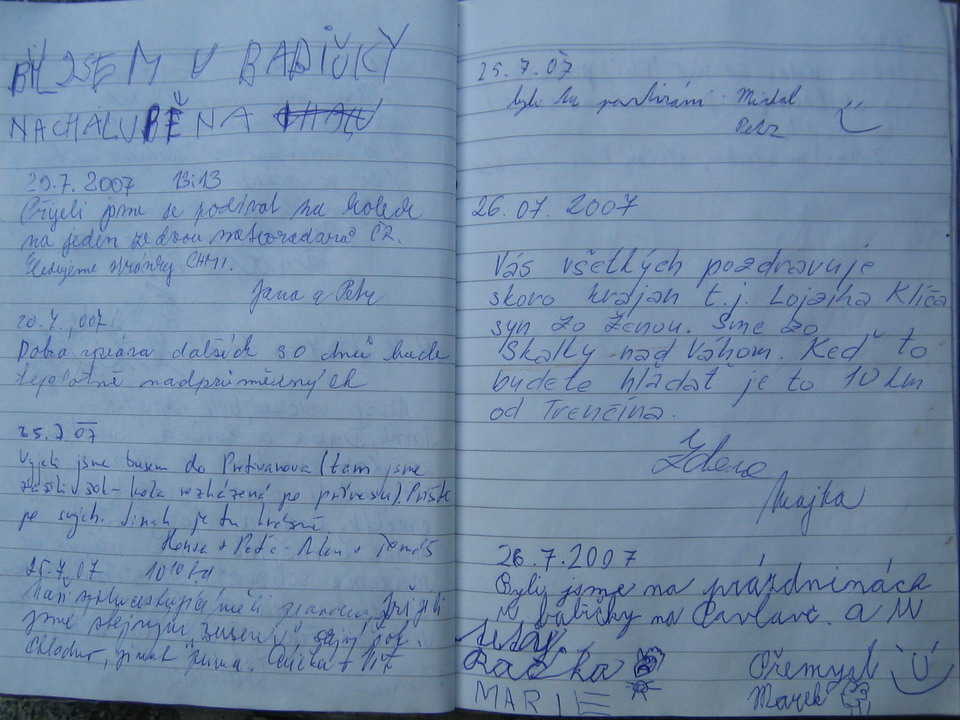 BYL JSEM U BABIČKY
NA CHALUPĚ NA
29.7.2007 13:13
Přijeli jsme se podívat na kolech
na jeden ze dvou meteoradarů ČR.
Sledujeme stránky CHMI.
Jana a Petr
Dobrá zpráva dalších 30 dnů bude
teplotně nadprůměrných
25.7.07
Vyjeli jsme busem do Protivanova (tam jsme
zažili šok - kola rozházená po přívěsu). Příště
po svých. Jinak je tu krásně
Honza + Péťa + Tomáš
25.7.07
měli pravdu, přijeli
jsme stejným busem
Chladno, jinak prima.
25.7.07
byli tu Michal
Petr
26.07.2007
Vás všetkých pozdravuje
skoro krajan t.j. Lojzka Klíča
syn zo ženou. Sme zo
Skalky nad Váhom. Keď to
budete hľadať je to 10 km
od Trenčína.
Zdeno
Majka
26.7.2007
Byly jsme na prázdninách
u babičky na Pavlově. a u
tety.
Radka
Přemysl
MARIE
Marek